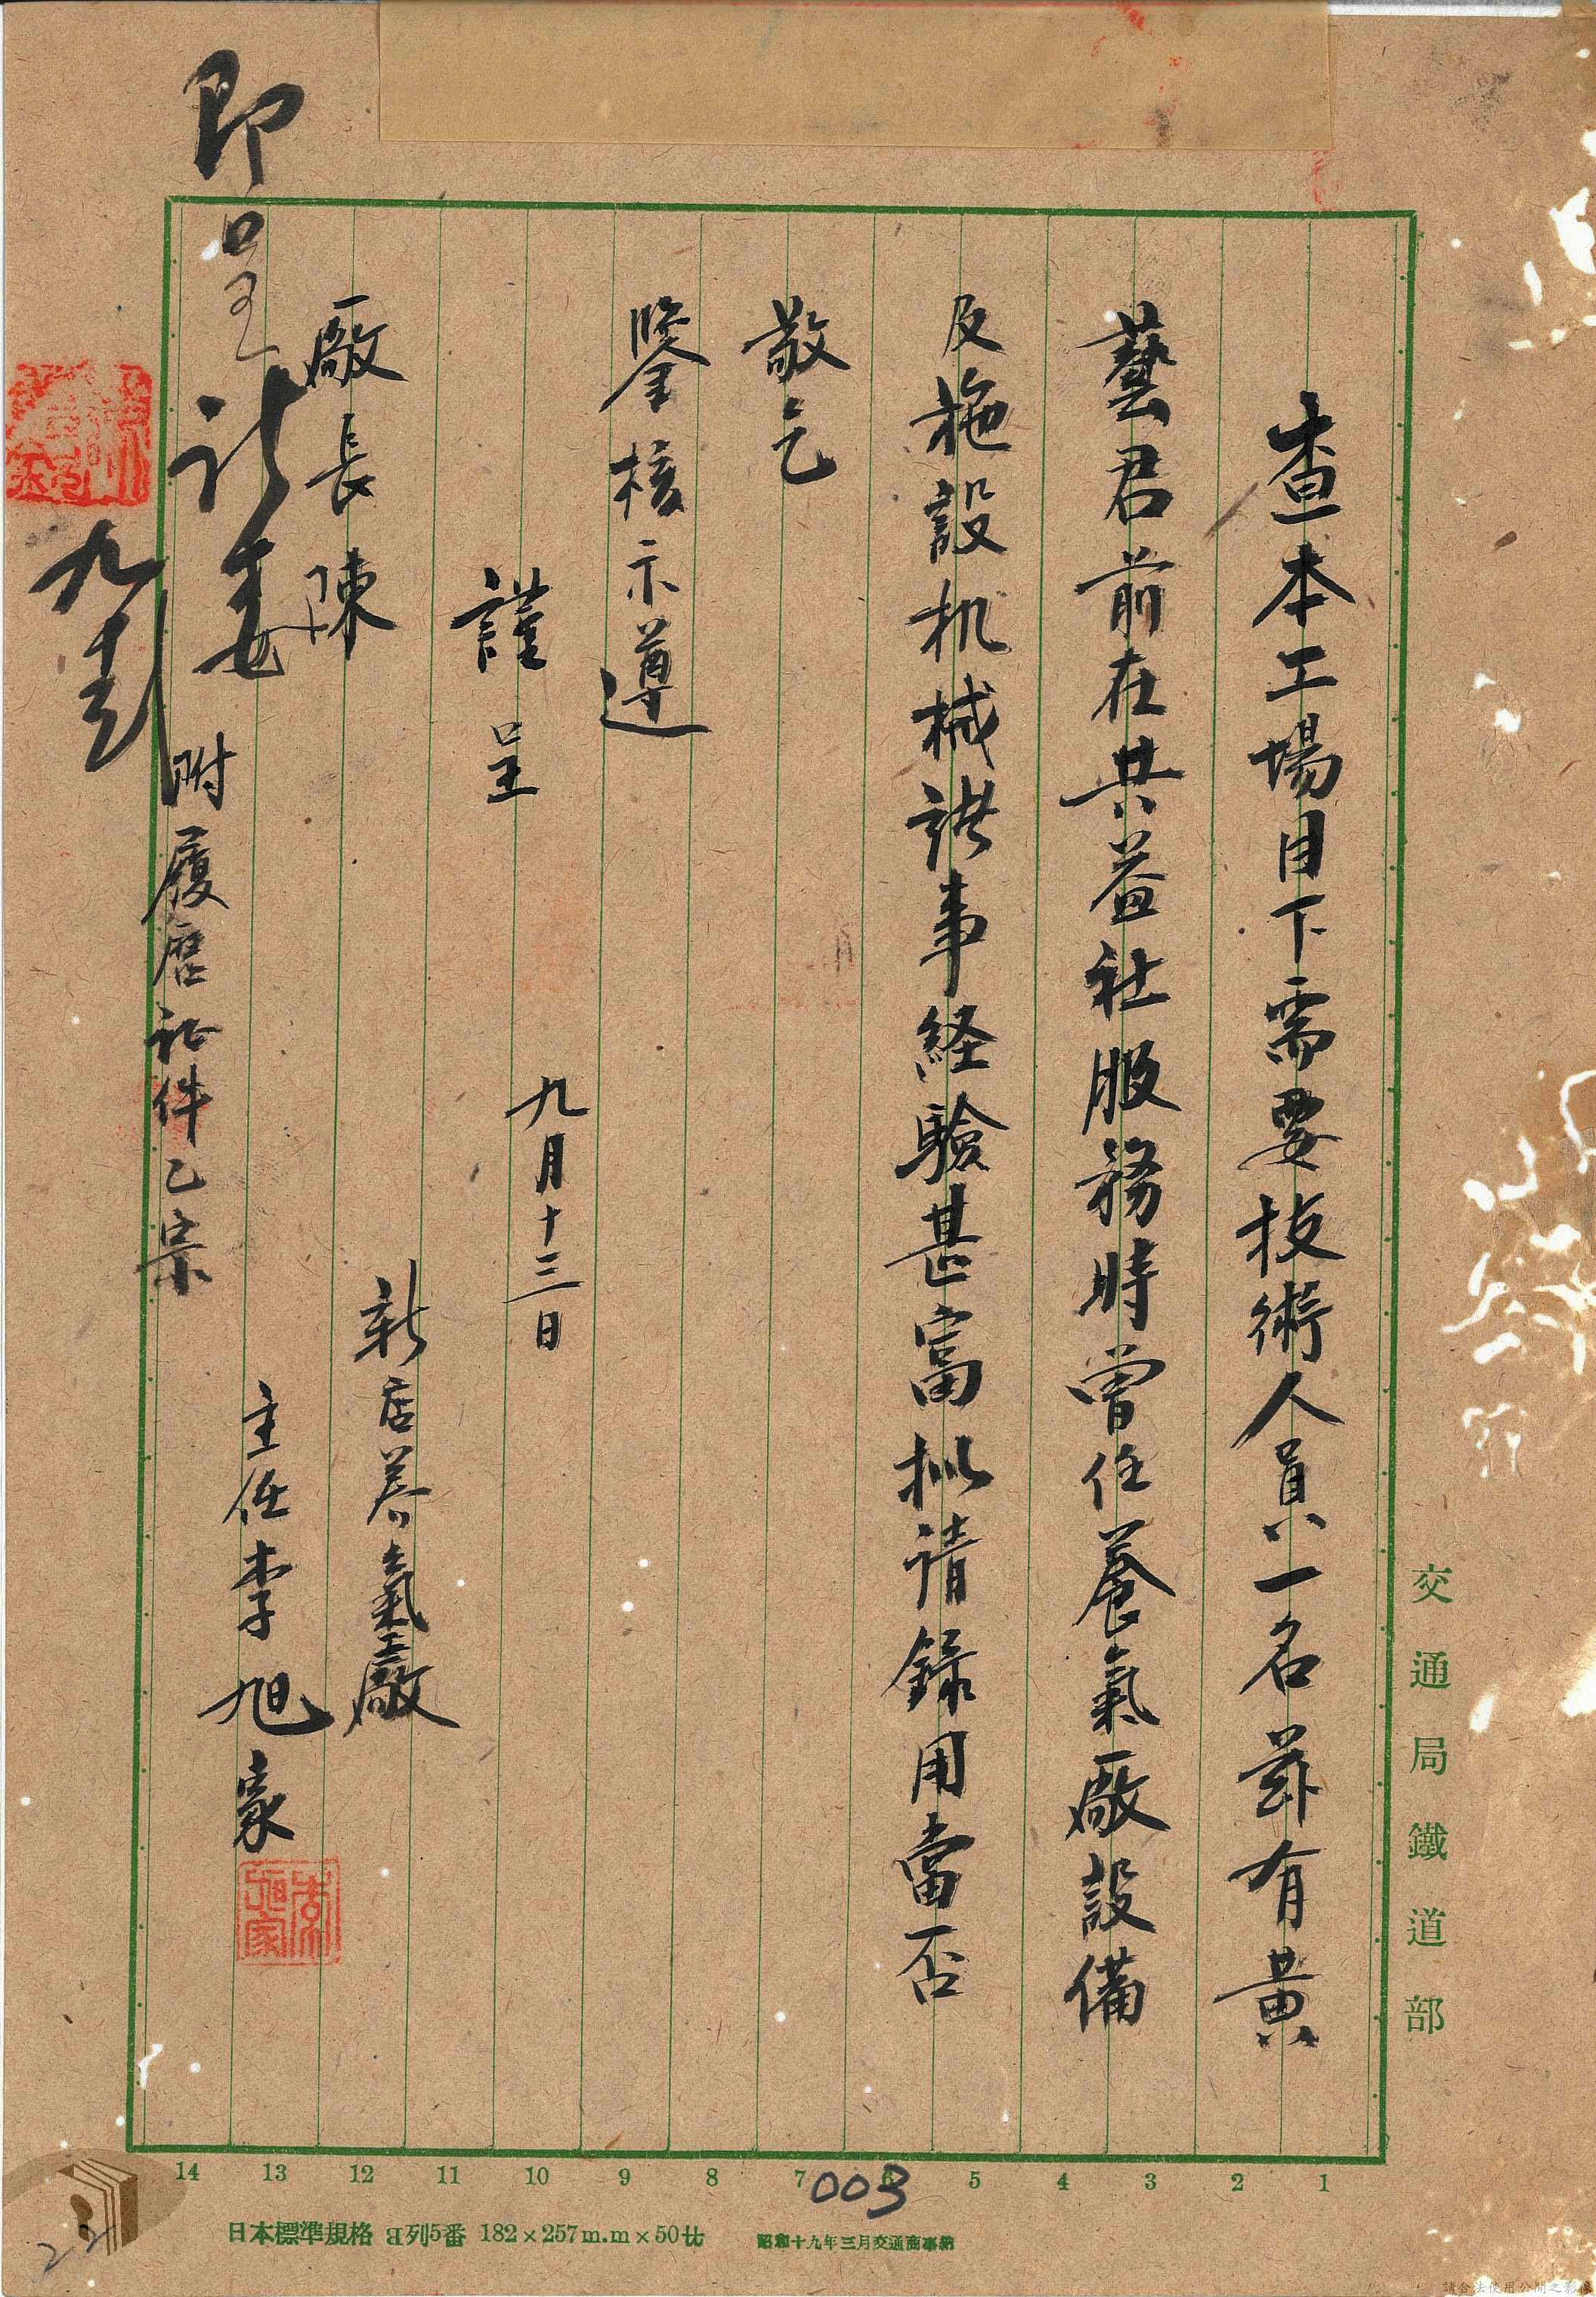 交通局鐵道部
查本工場目下需要技術人員一名茲有黃
藝君前在共益社服務時曾任養氣廠設備
及施設机械諸事経驗甚富拟请錄用當否
敬乞
鑒核示遵
謹呈
九月十三日
廠長陳
新店養氣廠
主任李旭家
即呈
附履歷証件乙宗
14 13 12 11 10 9 8 7 6 5 4 3 2 1
003
日本標準規格 B列5番 182×257m.m×50廿
昭和十九年三月交通商事納
請合法使用公開之影像